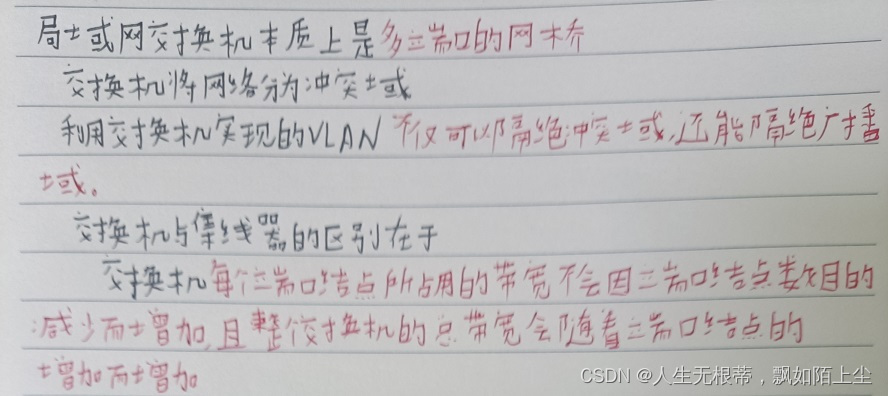 局域网交换机本质上是多端口的网桥
交换机将网络分为冲突域
利用交换机实现的VLAN不仅可以隔绝冲突域,还能隔绝广播
域。
交换机与集线器的区别在于
交换机每个端口结点所占用的带宽不会因端口结点数目的
减少而增加,且整个交换机的总带宽会随着端口结点的
增加而增加
CSDN @人生无根蒂，飘如陌上尘